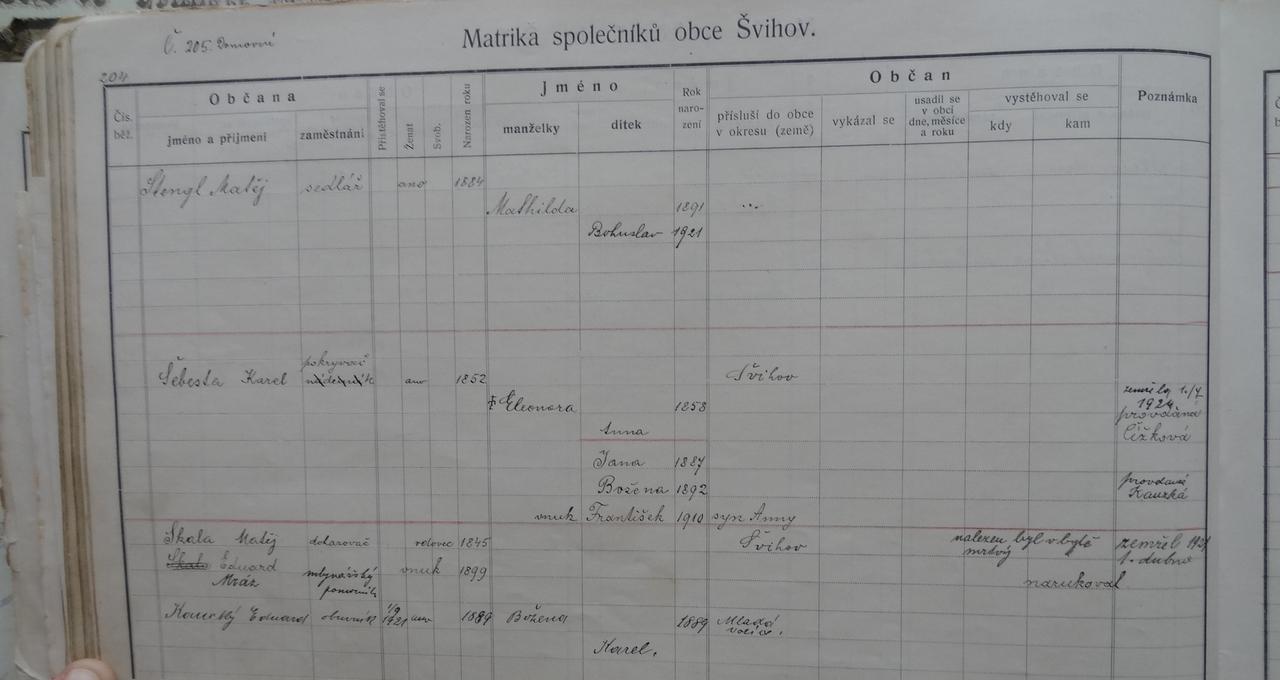 Č. 205. Domovní
Matrika společníků obce Švihov.
204
Čís. běž.
Občana
jméno a příjmení
zaměstnání
Přistěhoval se
Ženat
Svob.
Narozen roku
Jméno
manželky
dítek
Rok naro- zení
Občan
přísluší do obce v okresu (zemë)
vykázal se
usadil se v obci dne, měsíce a roku
vystěhoval se
kdy
kam
Poznámka
Štengl Matěj sedlář ano 1884
Mathilda 1891 ...
Bohuslav 1921
pokryvač
Šebesta Karel nádeník ano 1852 Švihov
Eleonora 1858 zemřela 1./7 1924
Anna provdaná Čížková
Jana 1887
Božena 1892 provdaná
vnuk František 1910 syn Anny
Skala Matěj vdovec 1845 Švihov nalezen byl v bytě mrtvý zemřel
1. dubna
Skala Eduard vnuk 1899
Mráz mlynářský pomocník narukoval
Eduard obuvník 1/9 1921 ano 1889 Božena 1889 Mladá
Karel.